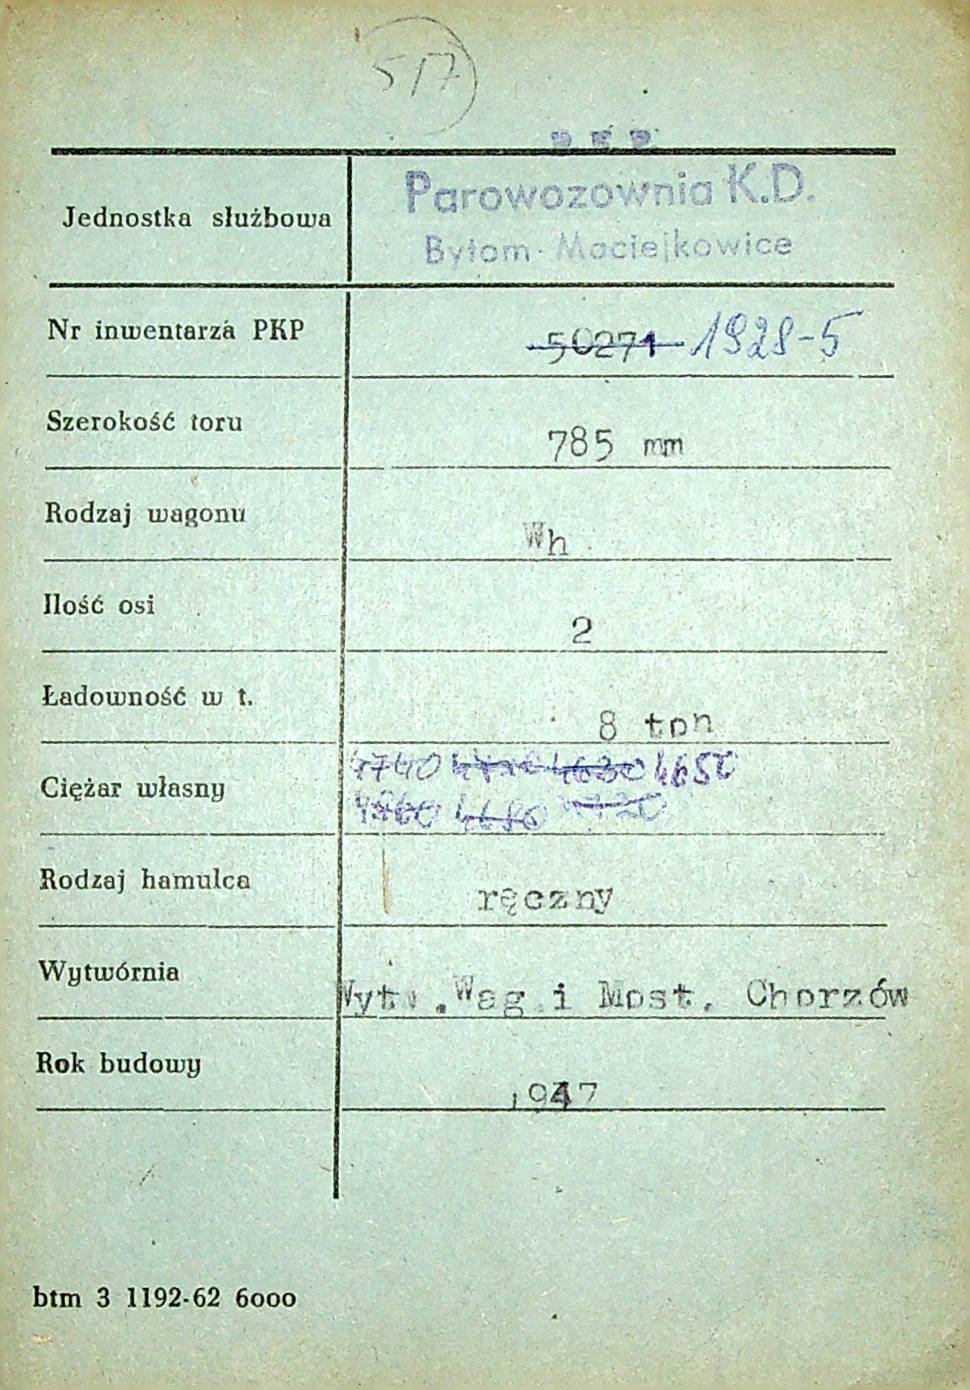 517
P.K.P.
Parowozownia K.D.
Jednostka służbowa
Bytom-Maciejkowice
Nr inwentarza PKP 50271 1928-5
Szerokość toru 785 mm
Rodzaj wagonu Wh
Ilość osi 2
Ładowność w t. 8 ton
4740 4630 4650
Ciężar własny
4680 4720
Rodzaj hamulca ręczny
Wytwórnia Wytw. Wag i Most. Chorzów
Rok budowy 1947
btm 3 1192-62 6000